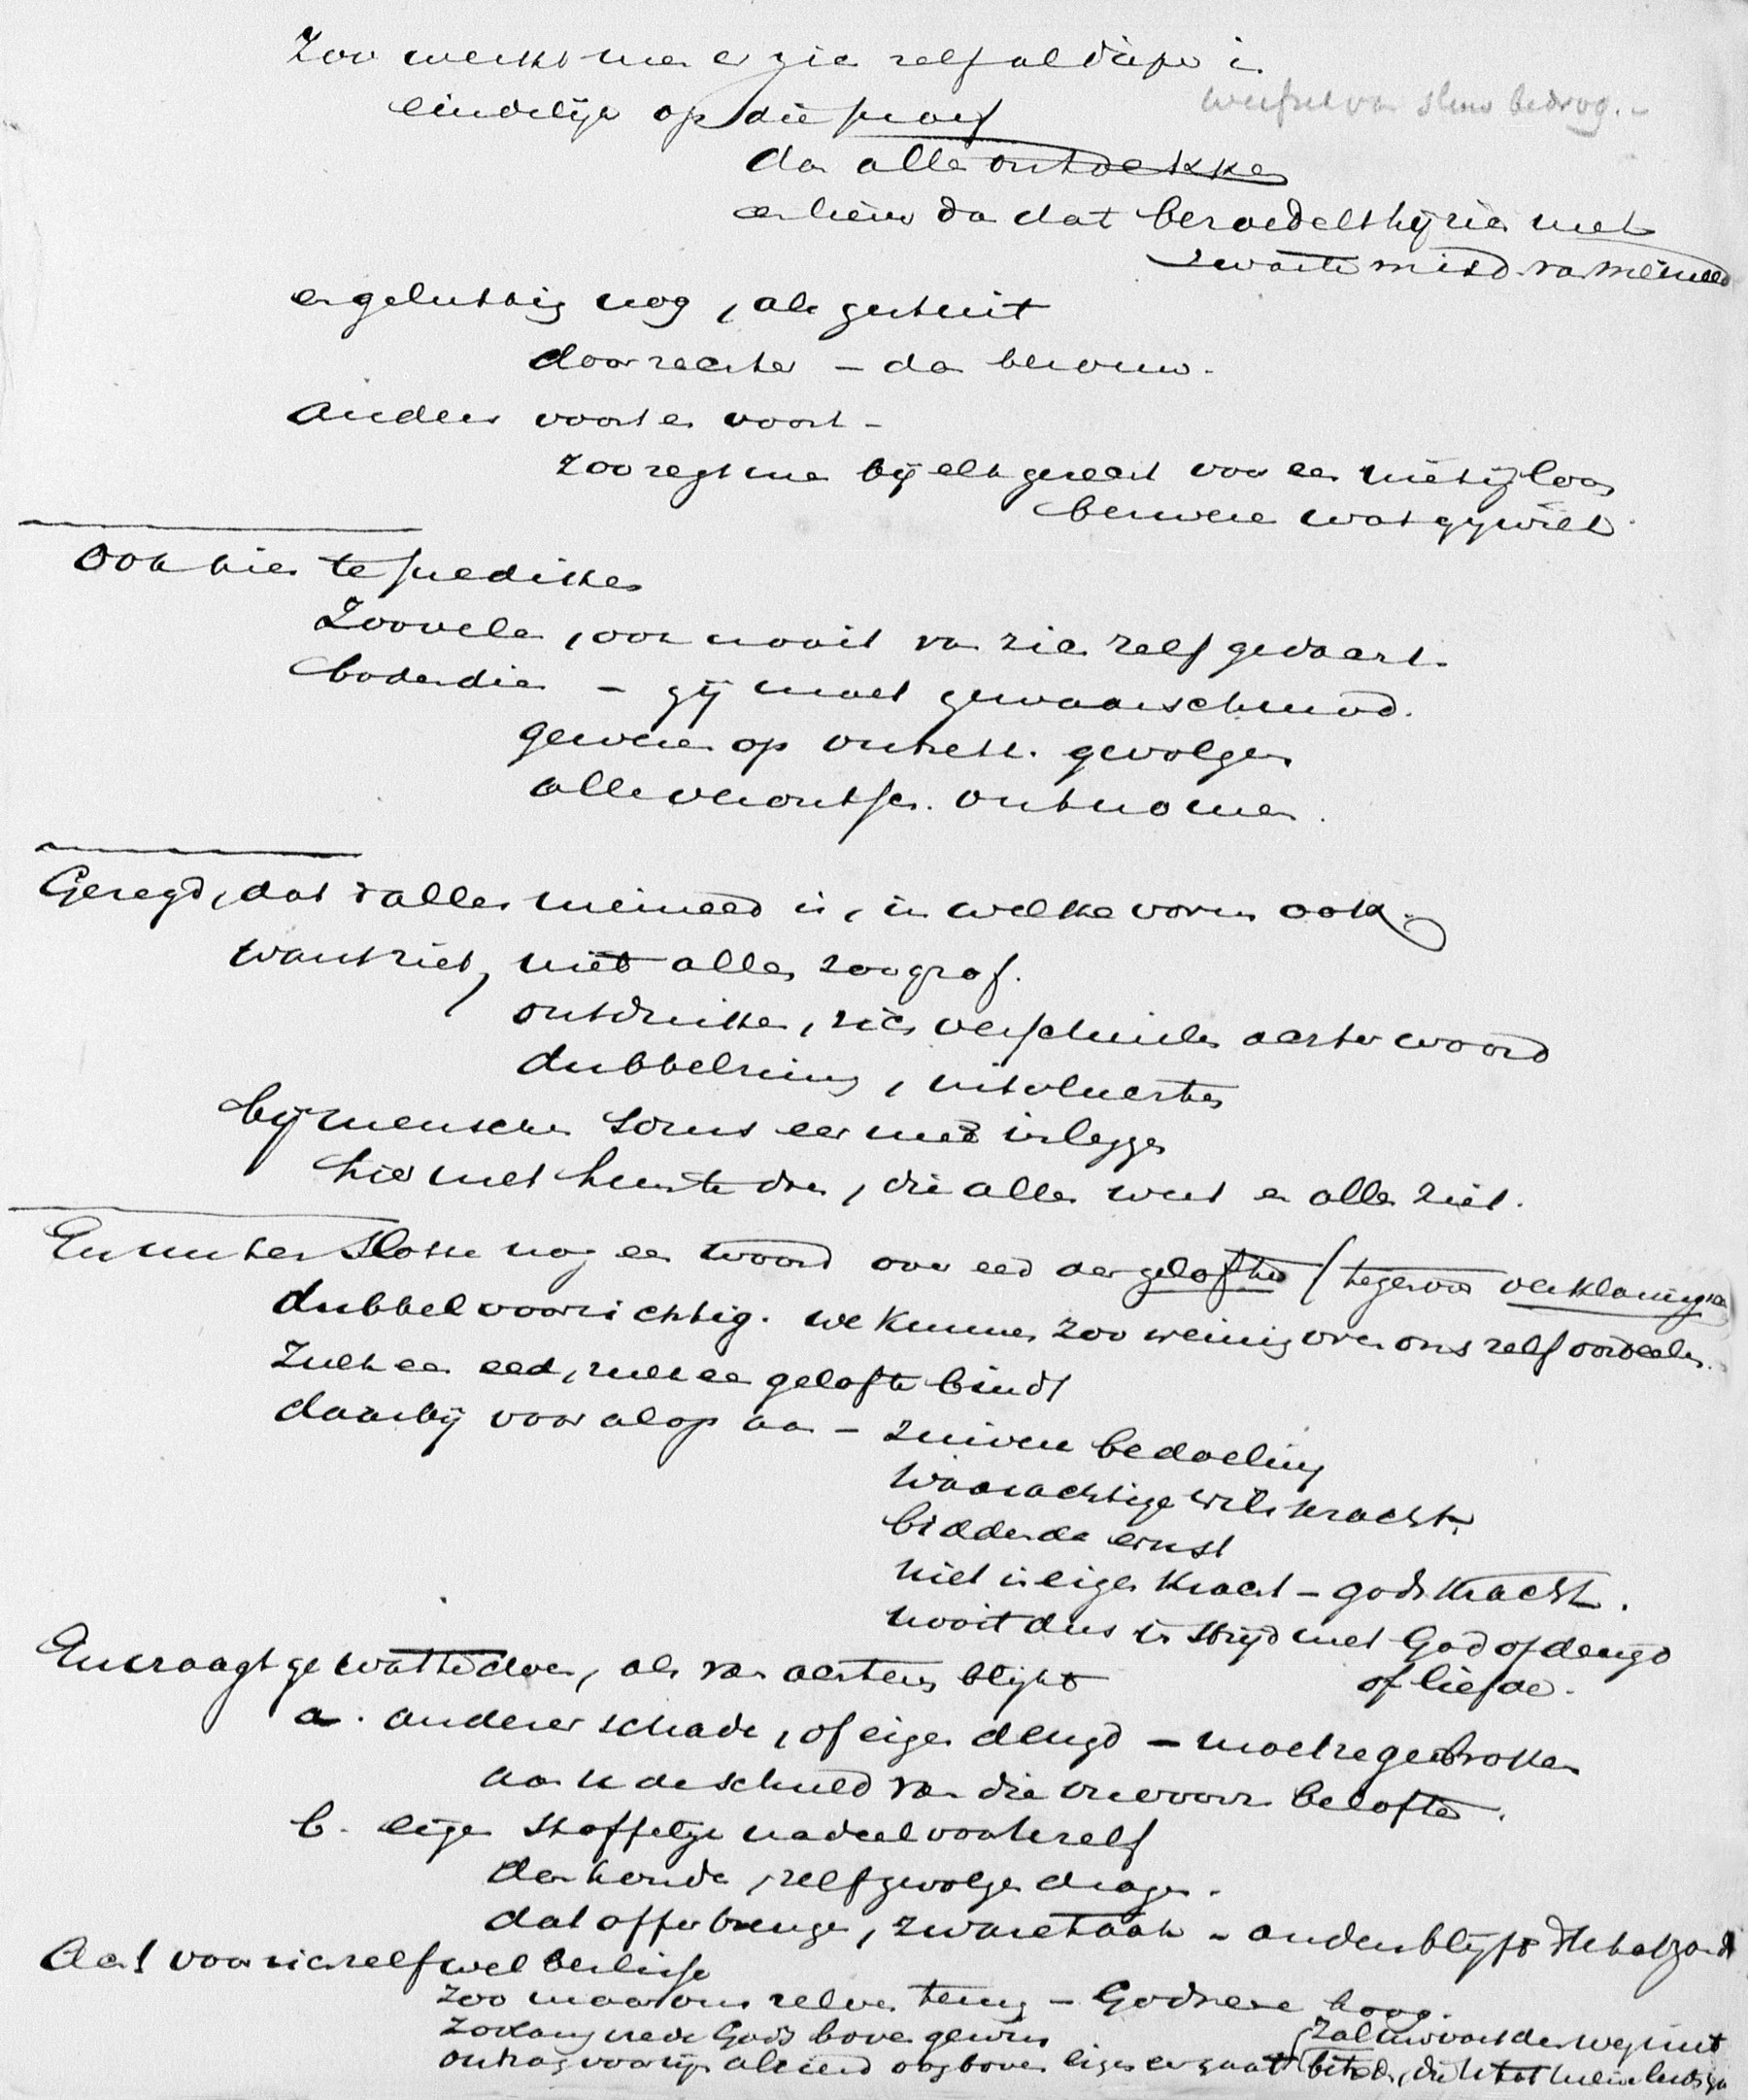 Zoo werkt men er zich zelf al dieper in
eindelijk op die proef
weefsel van slinks bedrog. -
dan alles ontdekken
en hem dan dat bezoedelt hij zich met
zwarte misd. van meineed
en gelukkig nog, als gestuit
door rechter - dan berouw.
Anders voort en voort -
zoo zegt men bij elk gerecht voor een nietig loon
bezweren wat gij wilt.
Ook hier te prediken
Zoovelen, ook nooit van zich zelf gedacht.
boden die - gij moet gewaarschuwd.
gewezen op ontzett. gevolgen
alle verontsch. ontnomen.
Gezegd, dat 't alles meineed is, in welke vorm ook.
want ziet, niet alles zoo grof.
ontduiken, zich verschuilen achter woord
dubbelzinnig, uitvluchten
bij menschen soms er mee inlegge
hier met hem te doen, die alles weet en alles ziet.
En nu ten slotte nog een woord over eed der gelofte / tegenover verklaring
dubbel voorzichtig. we kunnen zoo weinig over ons zelf oordeelen.
Zulk een eed, zulk een gelofte bindt
daarbij voor al op aan - zuivere bedoeling
waarachtige wilskracht.
biddende ernst
niet in eigen kracht - Gods kracht.
nooit dus in strijd met God of deugd
of liefde.
En vraagt ge wat te doen, als van achteren blijkt
a. anderer schade, of eigen deugd - moet ze gebroken
aan u de schuld van die onvoorz. belofte.
b. eigen stoffelijk nadeel voor u zelf
dan houden, zelf gevolgen dragen.
dat offer brengen, zware taak - anders blijft
Acht voor zich zelf wel
zoo maar ons zelven temmen - Gods eere hoog.
Zoolang vrede Gods boven gewin
zal uw voet den weg niet